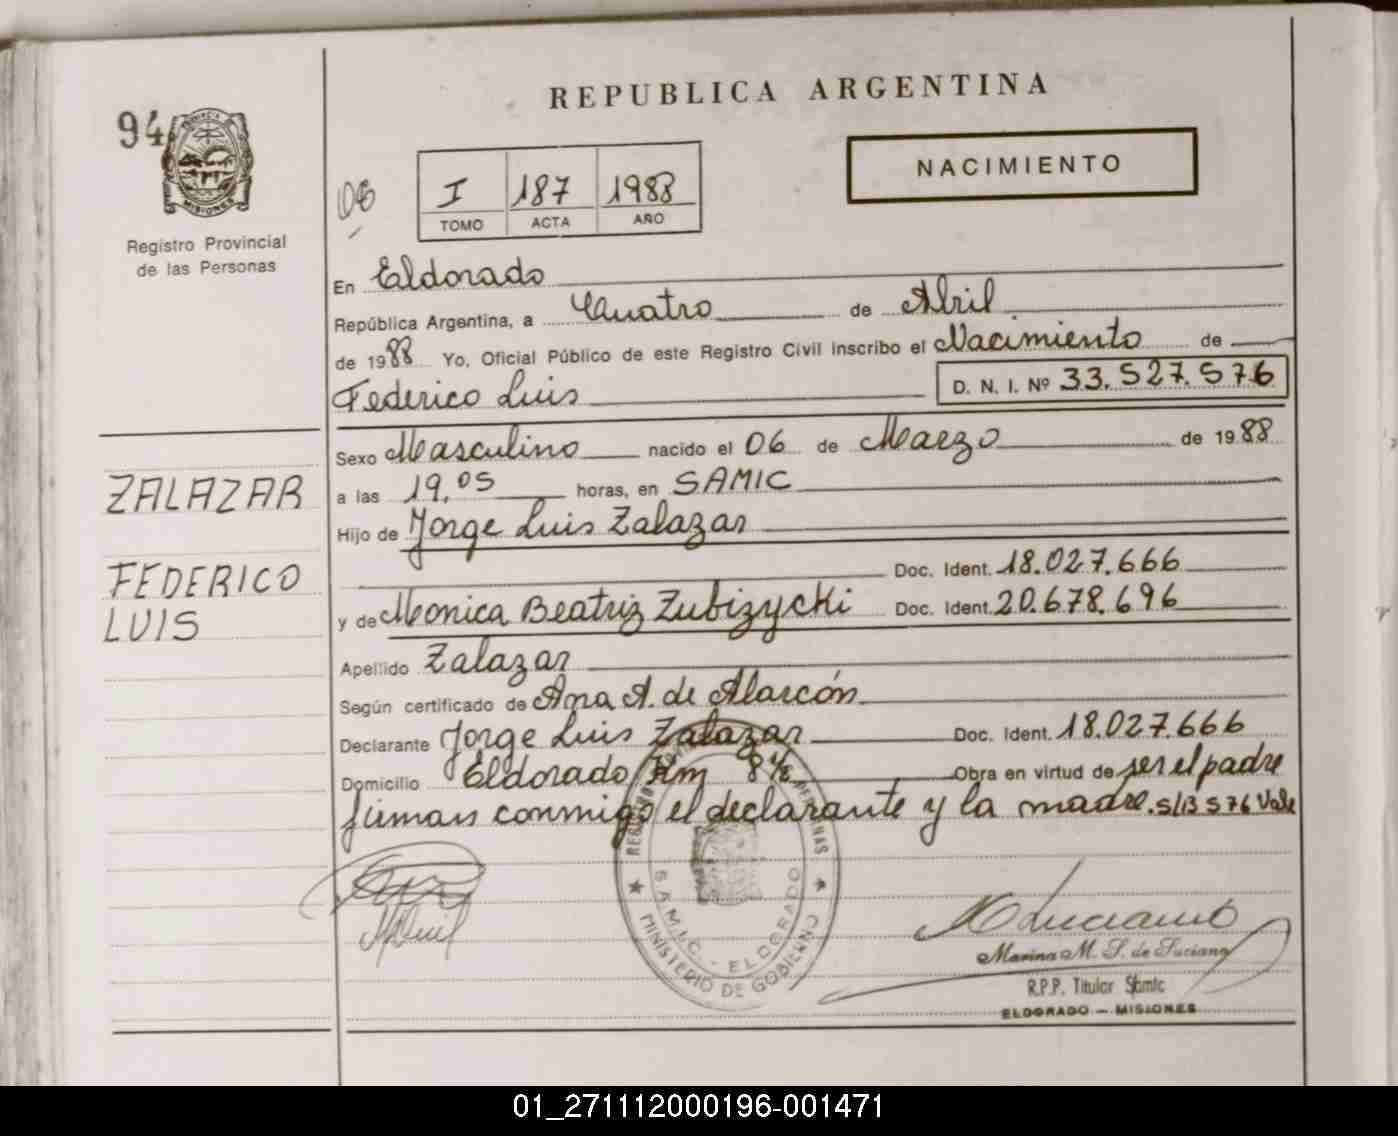 REPUBLICA ARGENTINA
94
PROVINCIA DE
MISIONES
Registro Provincial
de las Personas
06
I 187 1988
TOMO ACTA AÑO
NACIMIENTO
En Eldorado
República Argentina, a Cuatro de Abril
de 1988 Yo, Oficial Público de este Registro Civil inscribo el Nacimiento de
Federico Luis D. N. I. Nº 33.527.576
Sexo Masculino nacido el 06 de Marzo de 1988
a las 19,05 horas, en SAMIC
Hijo de Jorge Luis Zalazar
Doc. Ident. 18.027.666
y de Monica Beatriz Zubizycki Doc. Ident. 20.678.696
Apellido Zalazar
Según certificado de Ana A. de Alarcón
Declarante Jorge Luis Zalazar Doc. Ident. 18.027.666
Domicilio Eldorado Km 8½ Obra en virtud de ser el padre
firman conmigo el declarante y la madre. S/B 576 Vale
ZALAZAR
FEDERICO
LUIS
S.A.M.I.C. - ELDORADO
MINISTERIO DE GOBIERNO
Marina M. S. de Luciano
R.P.P. Titular Samic
ELDORADO - MISIONES
01_271112000196-001471